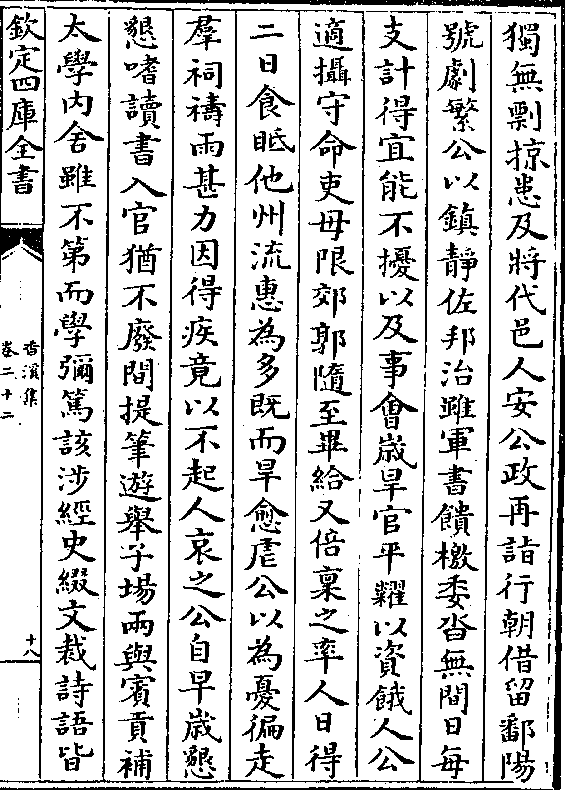 獨無剽掠患及將代邑人安公政再詣行朝借留鄱陽
號劇繁公以鎮靜佐邦治雖軍書饋檄委沓無間日每
支計得宜能不擾以及事會歲旱官平糶以資餓人公
適攝守命吏毋限郊郭隨至畢給又倍稟之率人日得
二日食眡他州流惠為多既而旱愈虐公以為憂徧走
羣祠禱雨甚力因得疾竟以不起人哀之公自早歲懇
懇嗜讀書入官猶不廢間提筆遊舉子場兩與賓貢補
太學內舍雖不第而學彌篤該涉經史綴文裁詩語皆
欽定四庫全書
香溪集
卷二十二
十八